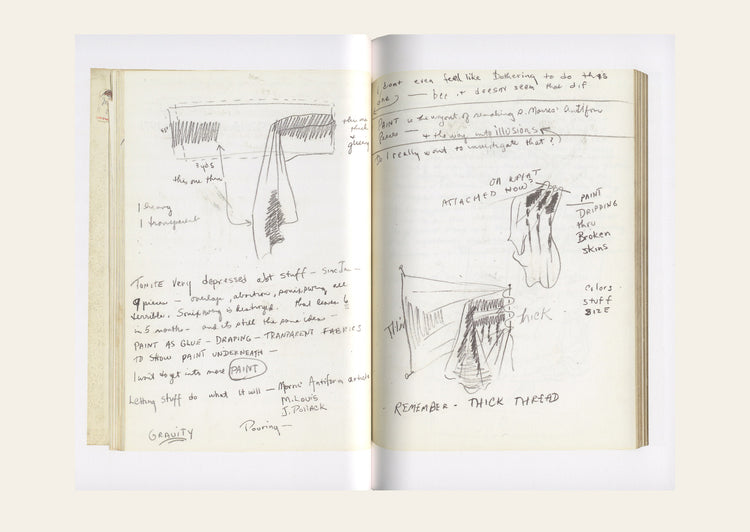 3 yds
this one thin
1 heavy
1 transparent
this one
thick
+
gluey
TONITE very depressed abt stuff – since Jan –
9 pieces – overlap, abortion, all
terrible. is destroyed. that leaves 6
in 5 month – and its still the same idea –
PAINT AS GLUE – DRAPING – TRANPARENT FABRICS
TO SHOW PAINT UNDERNEATH –
I want to get into more PAINT
Letting stuff do what it will – Morris' Antiform article
M. Louis
J. Pollack
GRAVITY Pouring –
I dont even feel like bothering to do this
one) – bec it doesnt seem that dif
PAINT is the way out of remaking R. Morris' Antiform
Pieces – + the way into ILLUSIONS
Do I really want to investigate that?)
OR WHAT
ATTACHED NOW?
PAINT
DRIPPING
thru
Broken
skins
Colors
stuff
SIZE
Thin
thick
REMEMBER – THICK THREAD